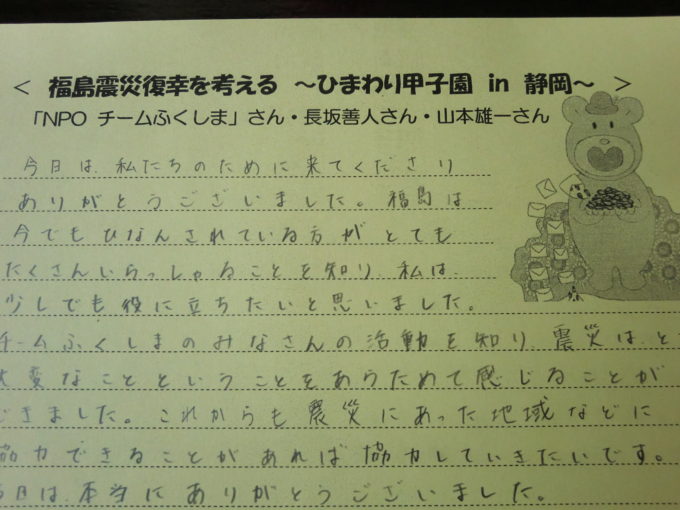 ＜ 福島震災復幸を考える ～ひまわり甲子園 in 静岡～ ＞
「NPO チームふくしま」さん・長坂善人さん・山本雄一さん
今日は、私たちのために来てくださり
ありがとうございました。福島は
今でもひなんされている方がとても
たくさんいらっしゃることを知り、私は、
少しでも役に立ちたいと思いました。
チームふくしまのみなさんの活動を知り、震災はと
大変なことということをあらためて感じることが
できました。これからも震災にあった地域などに
協力できることがあれば協力していきたいです。
今日は、本当にありがとうございました。